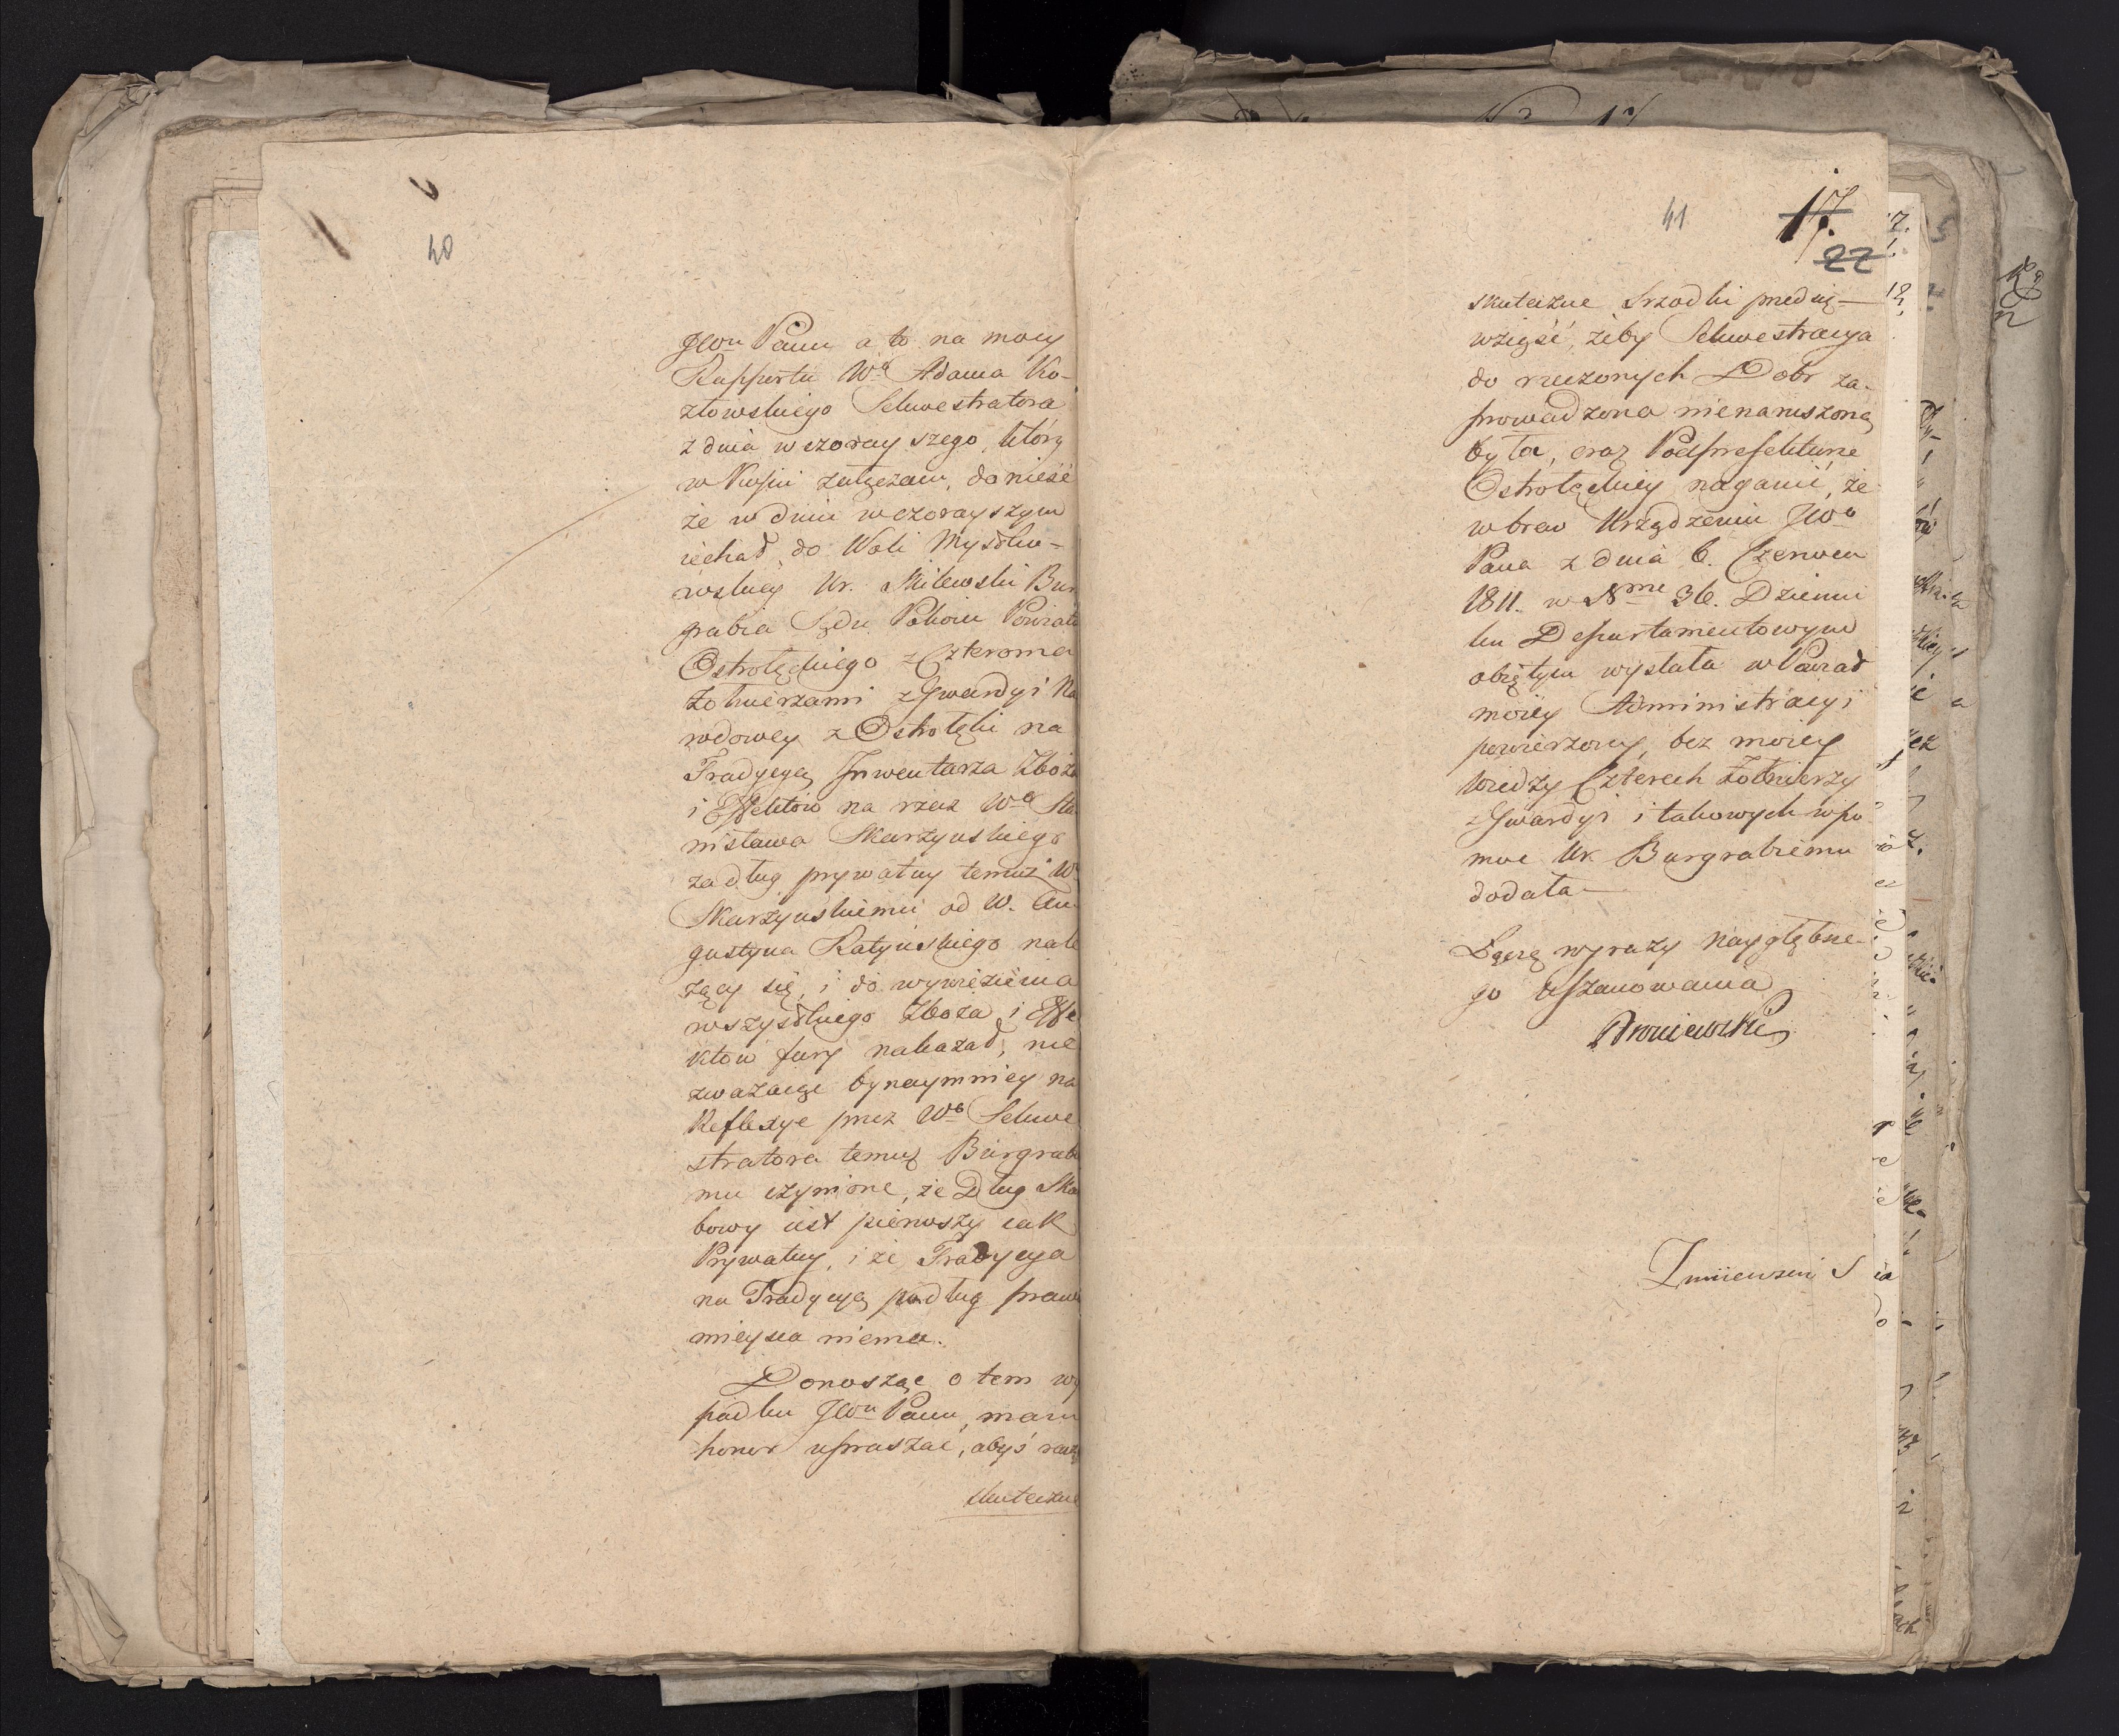 40
JWu Panu a to na mocy
Rapportu Wo Adama Ko-
złowskiego Sekwestratora
z dnia wczorayszego, który
w Kopii załączam, donieść
że w dniu wczorayszym
iechał do Woli Mysdko-
wskiey Ur. Milewski Bur
grabia Sądu Pokoiu Powiatu
Ostrołęckiego z Czteroma
Żołnierzami z Gwardyi Na
rodowey z Ostrołęki na
Tradycyą Inwentarza Zboża
i Effektów na rzecz Wo Sta
nisława Skarzynskiego
za dług prywatny temuż W
Skarzynskiemu od W. Au-
gustyna Ratyńskiego nale
żący się, i do wywiezienia
wszystkiego Zboża i Effe
któw fury nakazał, nie
zważaiąc bynaymniey na
Reflexye przez Wo Sekwe
stratora temuż Burgrabi
mu czynione, że Dług Ska
bowy iest pierwszy iak
Prywatny, i że Tradycya
na Tradycyą podług prawa
mieysca niema.
Donosząc o tem wy
padku JWu Panu, mam
honor upraszać, abyś raczy
skuteczne
41
17.
22
skuteczne Srzodki przedsię-
wziąść, żeby Sekwestracya
do rzeczonych Dobr za-
prowadzona nienaruszoną
była, oraz Podprefekturze
Ostrołęckiey naganić, że
wbrew Urządzeniu JWo
Pana z dnia 6. Czerwca
1811. w Nrme 36. Dzienni
ku Departamentowym
obiętym wysłała w Powiat
moiey Administracyi
powierzony, bez moiey
Wiedzy Czterech Żołnierzy
z Gwardyi i takowych w po
moc Ur. Burgrabiemu
dodała.
Łączę wyrazy naygłębsze-
go uszanowania